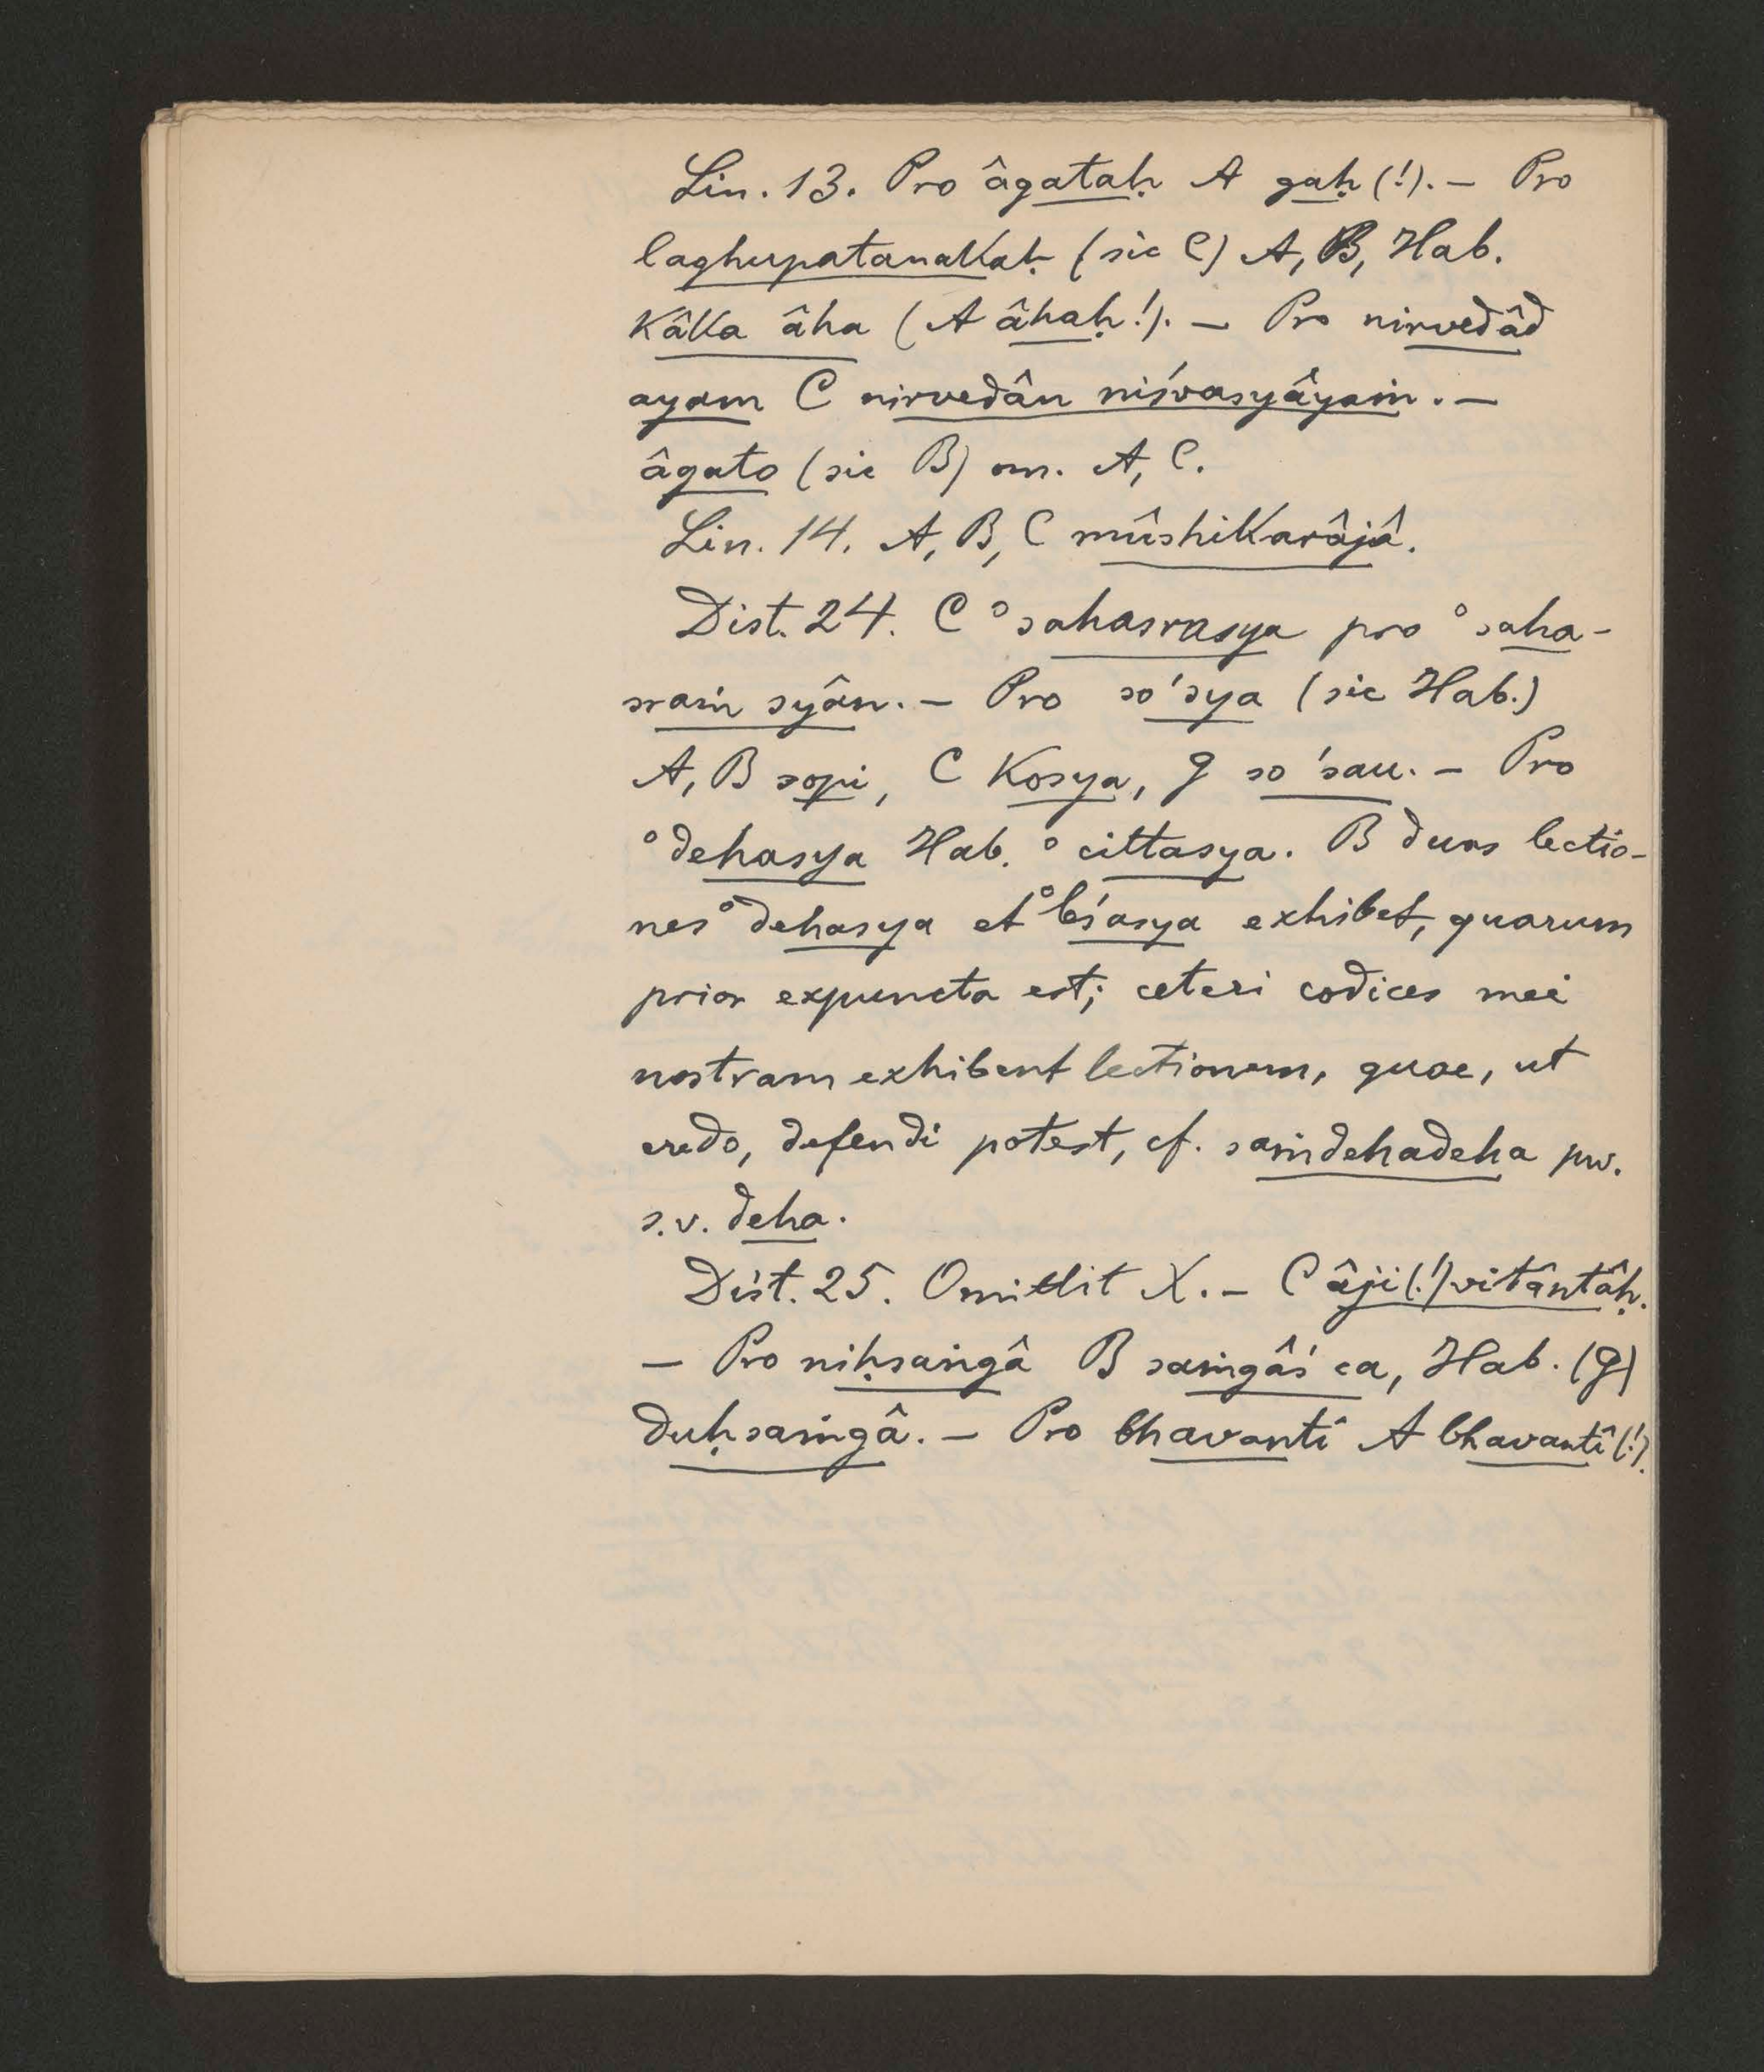 Lin. 13. Pro âgataḥ A gaḥ (!). — Pro
laghupatanakaḥ (sic C) A, B, Hab.
kâka âha (A âhaḥ!). — Pro nirvedâd
ayam C nirvedân niśvasyâyaṁ. —
âgato (sic B) om. A, C.
Lin. 14. A, B, C mûshikarâjâ.
Dist. 24. C °sahasrasya pro °saha-
sraṁ syân. — Pro so'sya (sic Hab.)
A, B sopi, C kosya, g so'sau. — Pro
°dehasya Hab. °cittasya. B duas lectio-
nes °dehasya et °leśasya exhibet, quarum
prior expuncta est; ceteri codices mei
nostram exhibent lectionem, quae, ut
credo, defendi potest, cf. saṁdehadeha pw.
s.v. deha.
Dist. 25. Omittit X. — C âji(!)vitântâḥ.
— Pro niḥsaṁgâ B saṁgâś ca, Hab. (g)
duḥsaṁgâ. — Pro bhavanti A bhavantî (!).